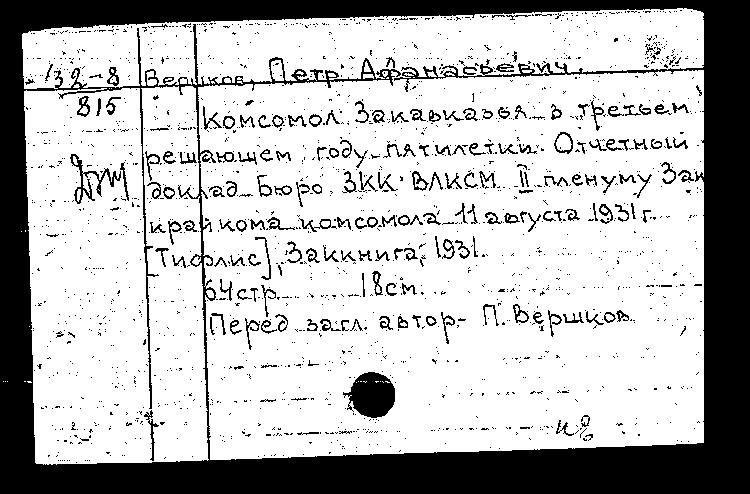 132-8
815
Вершков, Петр Афанасьевич.
Комсомол Закавказья в третьем
решающем году пятилетки. Отчетный
доклад Бюро ЗКК ВЛКСМ II пленуму Зак
крайкома комсомола 11 августа 1931 г.
[Тифлис], Заккнига, 1931.
64 стр. 18 см.
Перед загл. автор- П. Вершков